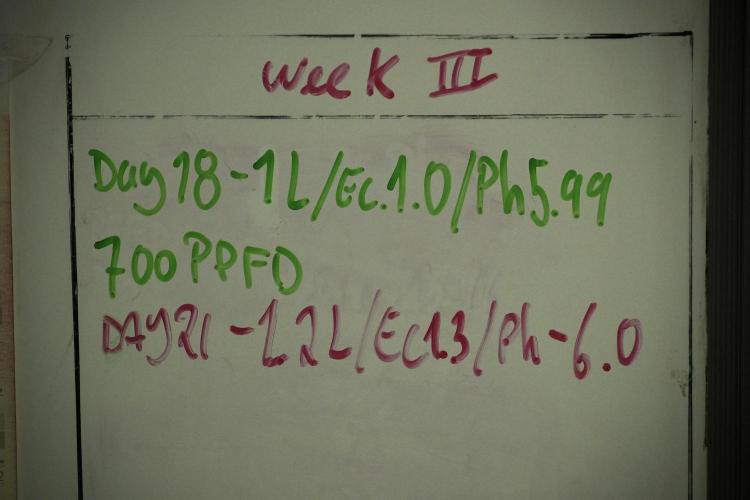 Week III
Day 18 - 1L/Ec.1.0/Ph5.99
700 PPFD
DAY 21 - 1.2L/Ec1.3/Ph-6.0